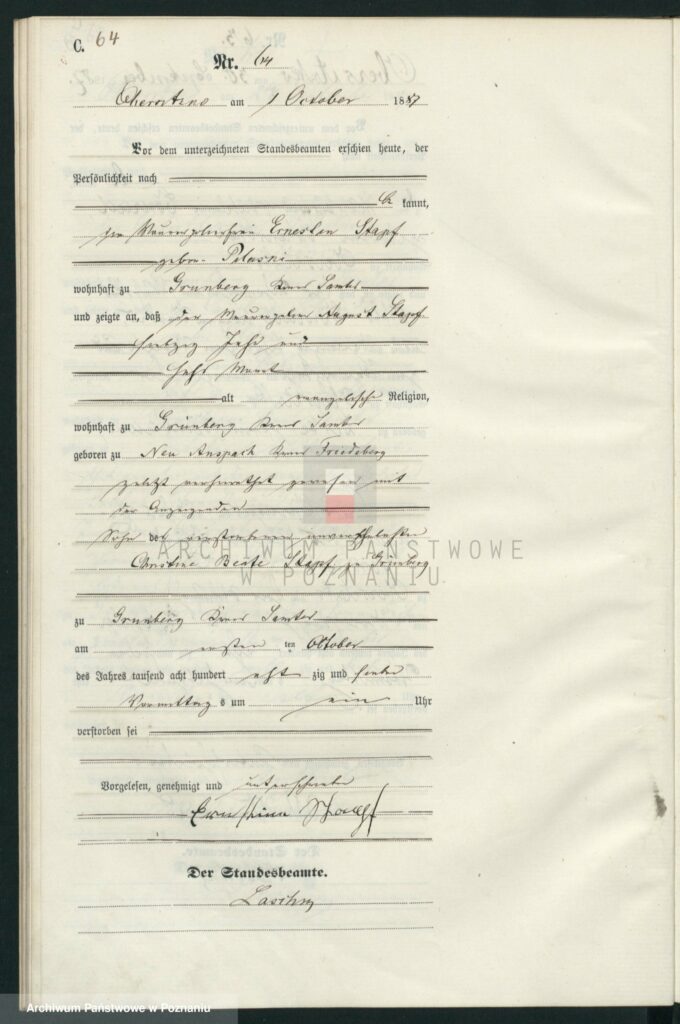 C. 64
Nr. 64
am 1 October 1887
Vor dem unterzeichneten Standesbeamten erschien heute, der
Persönlichkeit nach
be kannt,
die Stapf
gebor.
wohnhaft zu Grünberg Kreis Samter
und zeigte an, daß der August Stapf
siebzig Jahr und
sechs Monat
alt evangelische Religion,
wohnhaft zu Grünberg Kreis Samter
geboren zu Neu Anspach Kreis Friedeberg
zuletzt verheirathet gewesen mit
der Anzeigenden
Sohn der verstorbenen unverehelichten
Christine Beate Stapf zu Grünberg
zu Grünberg Kreis Samter
am ersten ten October
des Jahres tausend acht hundert acht zig und sieben
Vormittag s um ein Uhr
verstorben sei
Vorgelesen, genehmigt und unterschrieben
Ernstine Stapf
Der Standesbeamte.
ARCHIWUM PAŃSTWOWE
W POZNANIU
Archiwum Państwowe w Poznaniu